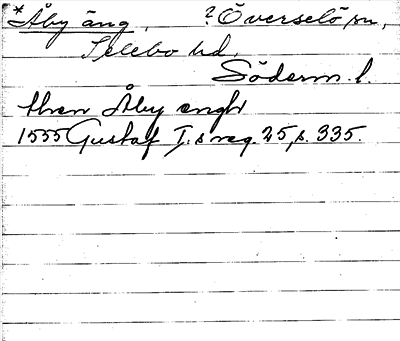 *Åby äng, ? Överselö sn,
Selebo hd,
Söderm. l.
then Åby engh
1555 Gustaf I:s reg. 25, s. 335.